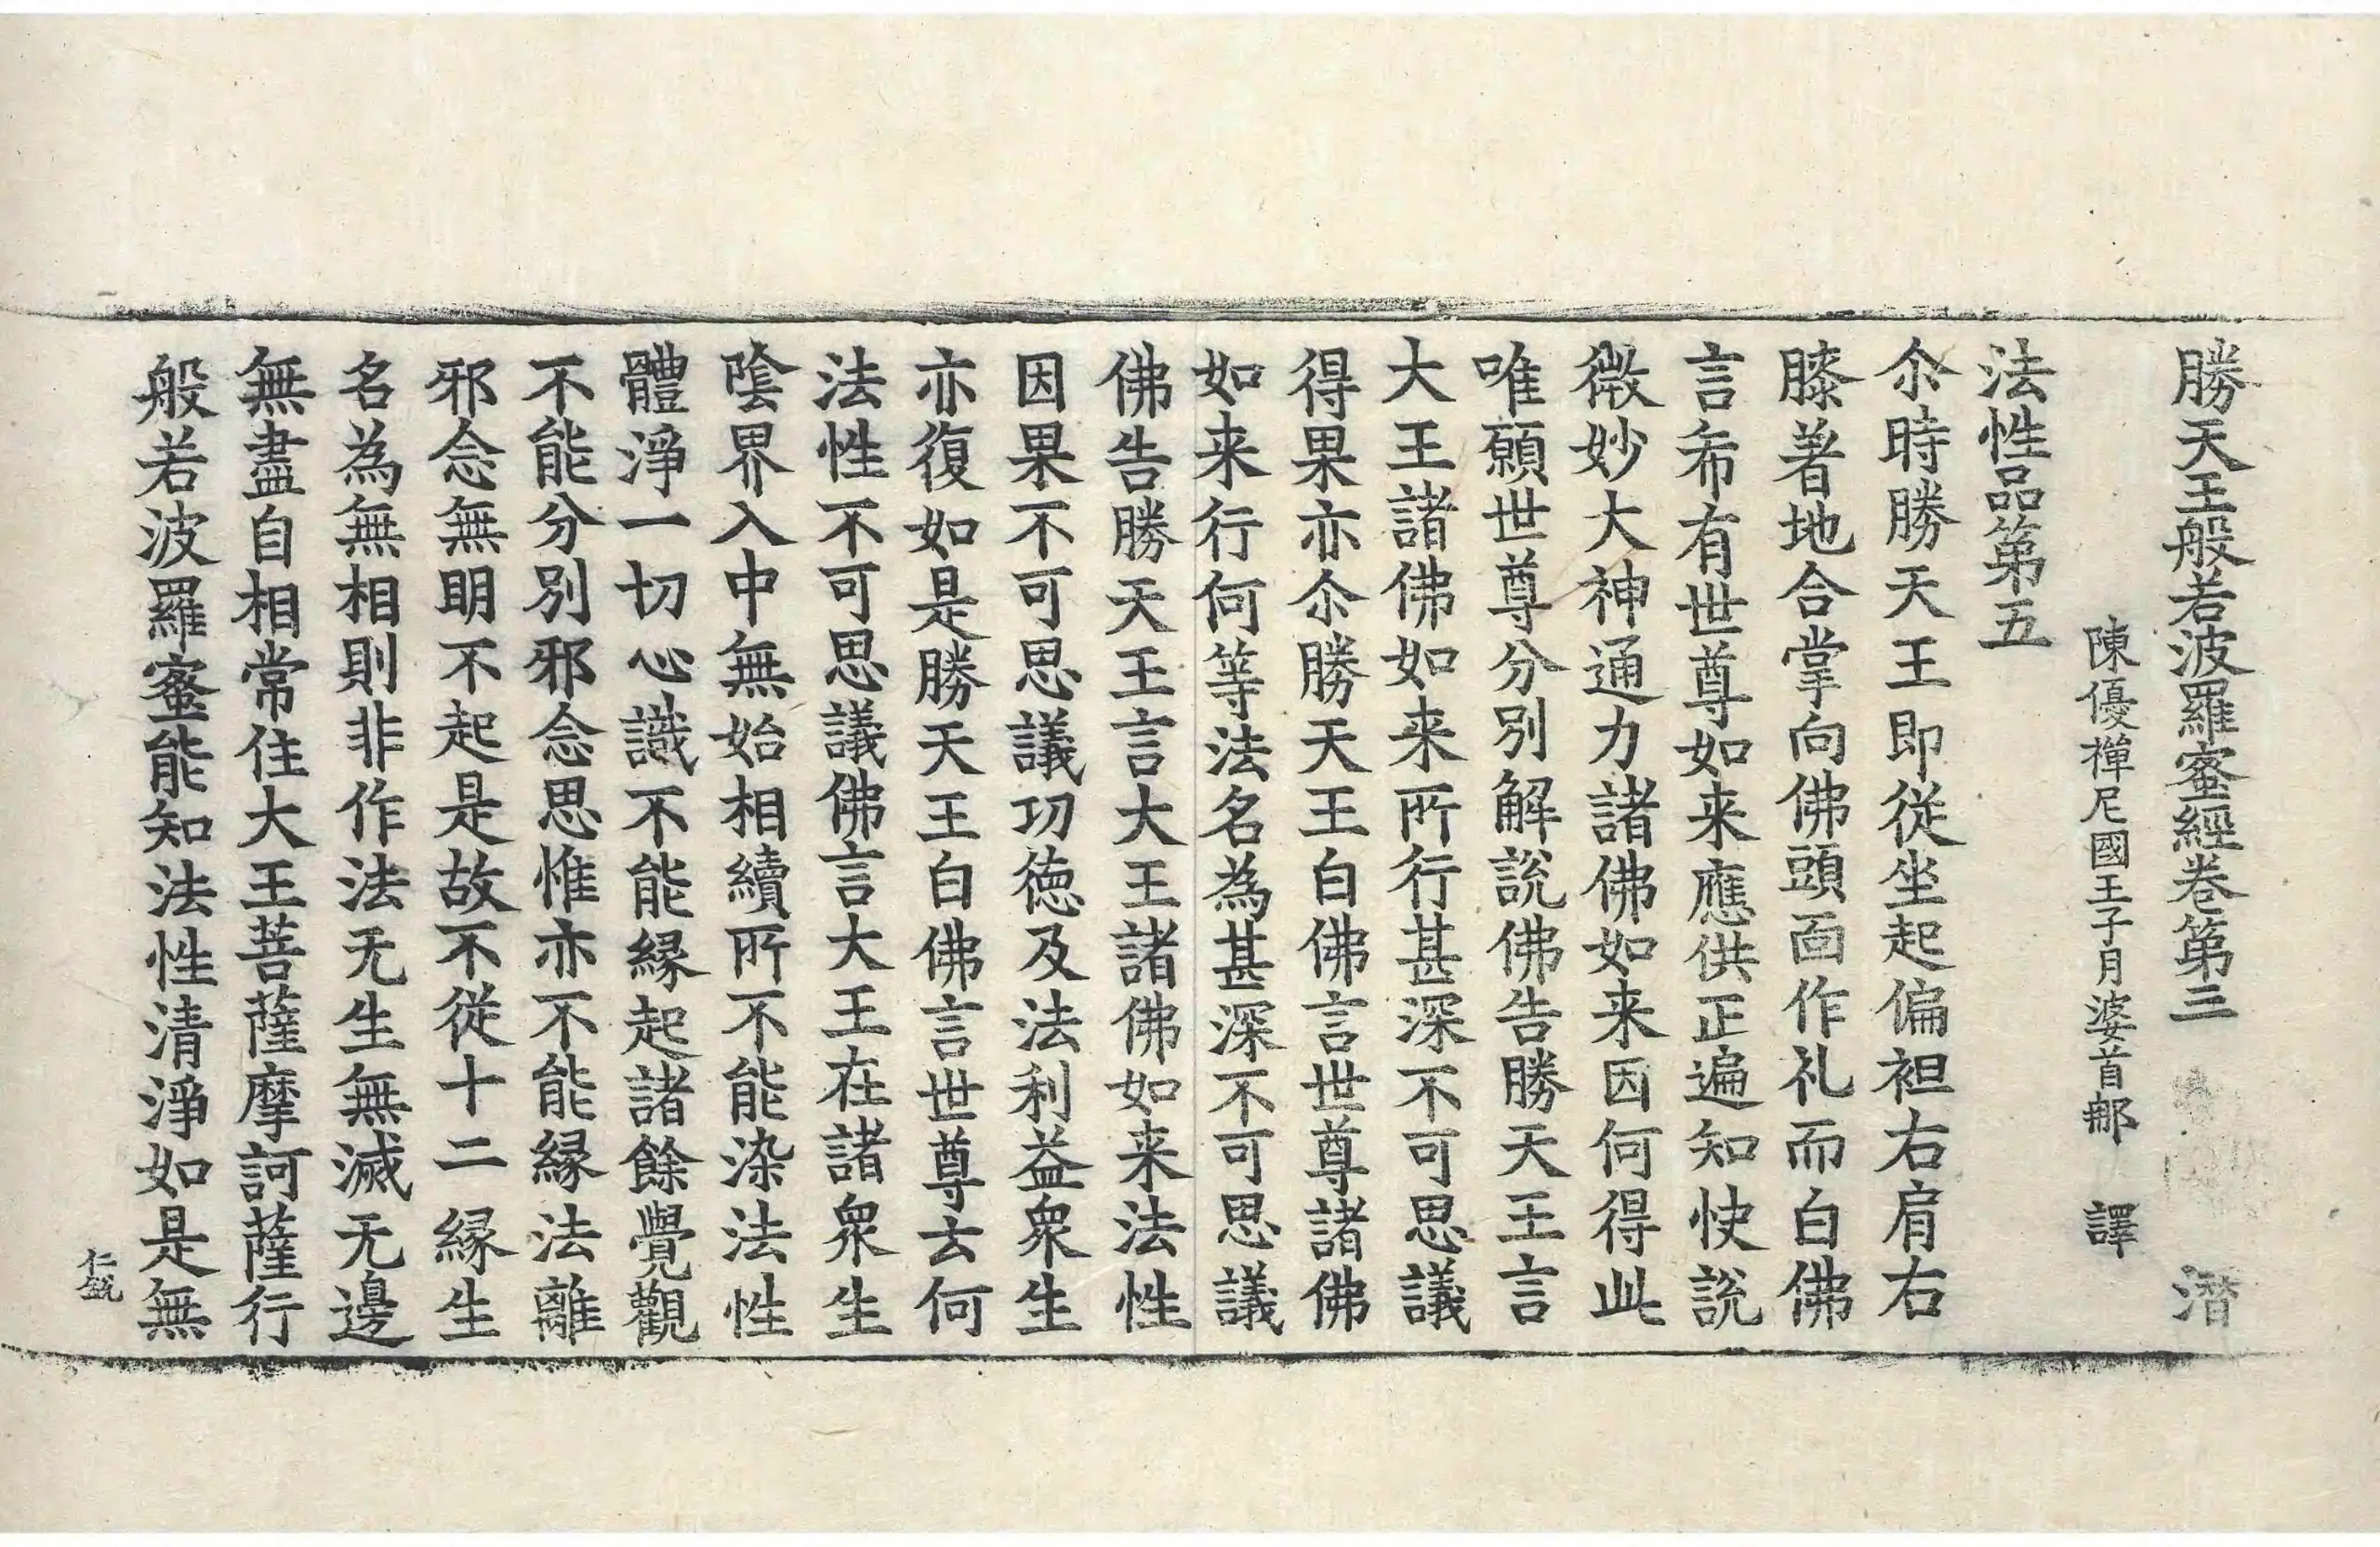 勝天王般若波羅蜜經卷第三 潛
陳優禪尼國王子月婆首那 譯
法性品第五
尒時勝天王即從坐起偏袒右肩右
膝著地合掌向佛頭面作礼而白佛
言希有世尊如来應供正遍知快說
微妙大神通力諸佛如来因何得此
唯願世尊分別解說佛告勝天王言
大王諸佛如来所行甚深不可思議
得果亦尒勝天王白佛言世尊諸佛
如来行何等法名為甚深不可思議
佛告勝天王言大王諸佛如来法性
因果不可思議功德及法利益衆生
亦復如是勝天王白佛言世尊云何
法性不可思議佛言大王在諸衆生
陰界入中無始相續所不能染法性
體淨一切心識不能緣起諸餘覺觀
不能分別邪念思惟亦不能緣法離
邪念無明不起是故不從十二緣生
名為無相則非作法无生無滅无邊
無盡自相常住大王菩薩摩訶薩行
般若波羅蜜能知法性清淨如是無